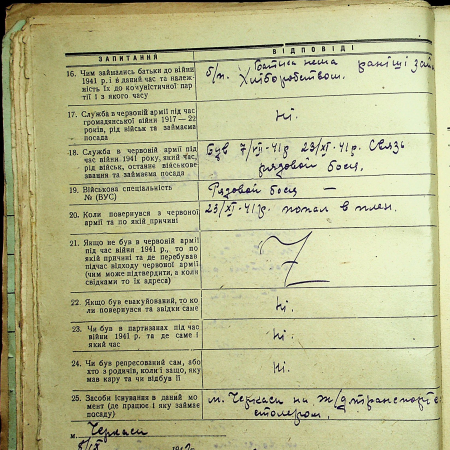 ЗАПИТАННЯ
ВІДПОВІДІ
16. Чим займались батьки до війни
1941 р. і в даний час та належ-
ність їх до комуністичної пар-
тії і з якого часу
б/п. Батька нема раніш
Хліборобством.
17. Служба в червоній армії під час
громадянської війни 1917 — 22
років, рід військ та займаєма
посада
Ні.
18. Служба в червоній армії під
час війни 1941 року, який час,
рід військ, останнє військове
звання та займаєма посада
Був 7/VII-41р 23/XI-41р. Связь
рядовой боєц.
19. Військова спеціальність
№ (ВУС)
Рядовой боєц —
20. Коли повернувся з червоної
армії та по якій причині
23/XI-41р. попал в плен.
21. Якщо не був в червоній армії
під час війни 1941 р., то по
якій причині та де перебував
підчас відходу червоної армії
(чим може підтвердити, а коли
свідками то їх адреса)
22. Якщо був евакуйований, то ко-
ли повернувся та звідки саме
Ні.
23. Чи був в партизанах під час
війни 1941 р. та де саме і
який час
Ні.
24. Чи був репресований сам, або
хто з родичів, коли і защо, яку
мав кару та чи відбув її
Ні.
25. Засоби існування в даний мо-
мент (де працює і яку займає
посаду)
м. Черкаси на ж/д транспорті
столяром.
м. Черкаси